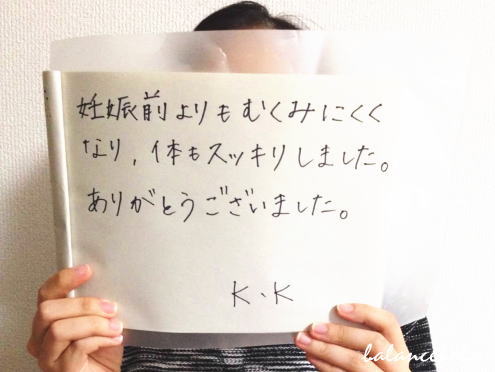 妊娠前よりもむくみにくく
なり、体もスッキリしました。
ありがとうございました。
K、K